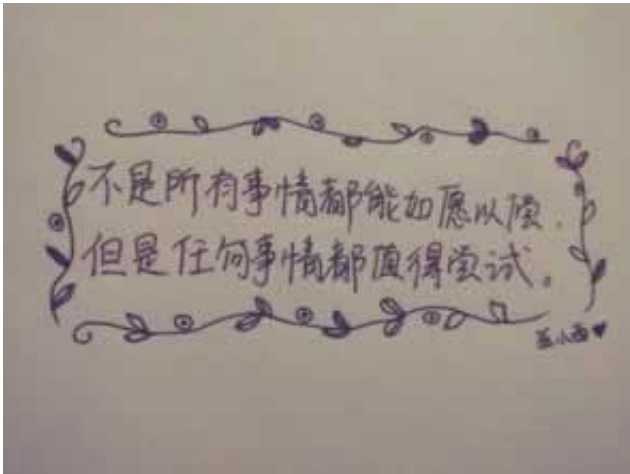 不是所有事情都能如愿以偿.
但是任何事情都值得尝试。
小西